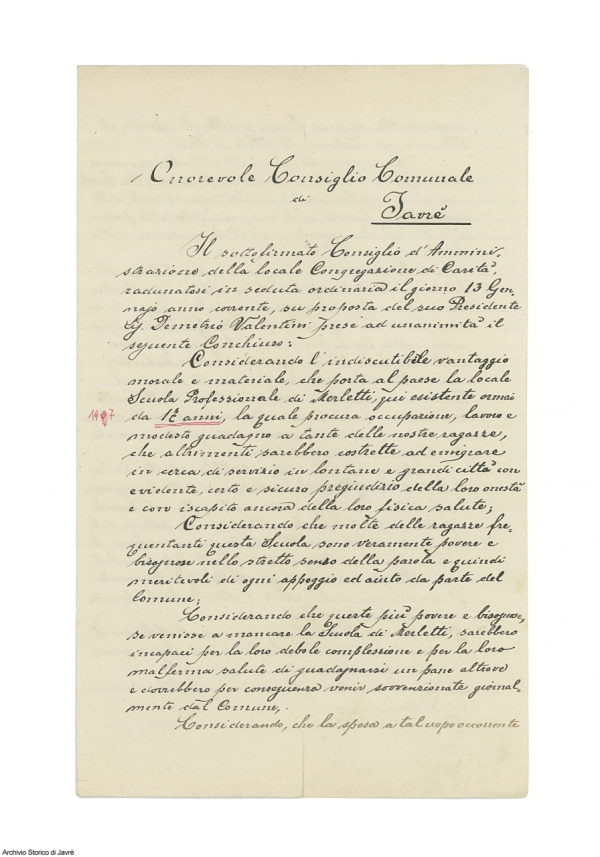 Onorevole Consiglio Comunale
di
Javrè
Il sottofirmato Consiglio d'Ammini,
strazione della locale Congregazione di Carità,
radunatosi in seduta ordinaria il giorno 13 Gen-
najo anno corrente, su proposta del suo Presidente
Sig. Demetrio Valentini prese ad unanimità il
seguente Conchiuso:
Considerando l'indiscutibile vantaggio
morale e materiale, che porta al paese la locale
Scuola Professionale di Merletti, qui esistente ormai
da anni, la quale procura occupazione, lavoro e
modesto guadagno a tante delle nostre ragazze,
che altrimenti sarebbero costrette ad emigrare
in cerca di servizio in lontane e grandi città con
evidente, certo e sicuro pregiudizio della loro onestà
e con iscapito ancora della loro fisica salute;
Considerando che molte delle ragazze fre,
quentanti questa Scuola sono veramente povere e
bisognose nello stretto senso della parola e quindi
meritevoli di ogni appoggio ed aiuto da parte del
Comune;
Considerando che queste più povere e bisognose,
se venisse a mancare la Scuola di Merletti, sarebbero
incapaci per la loro debole complessione e per la loro
malferma salute di guadagnarsi un pane altrove
e dovrebbero per conseguenza venir sovvenzionate giornal-
mente dal Comune,
Considerando, che la spesa a tal uopo occorrente
Archivio Storico di Javrè